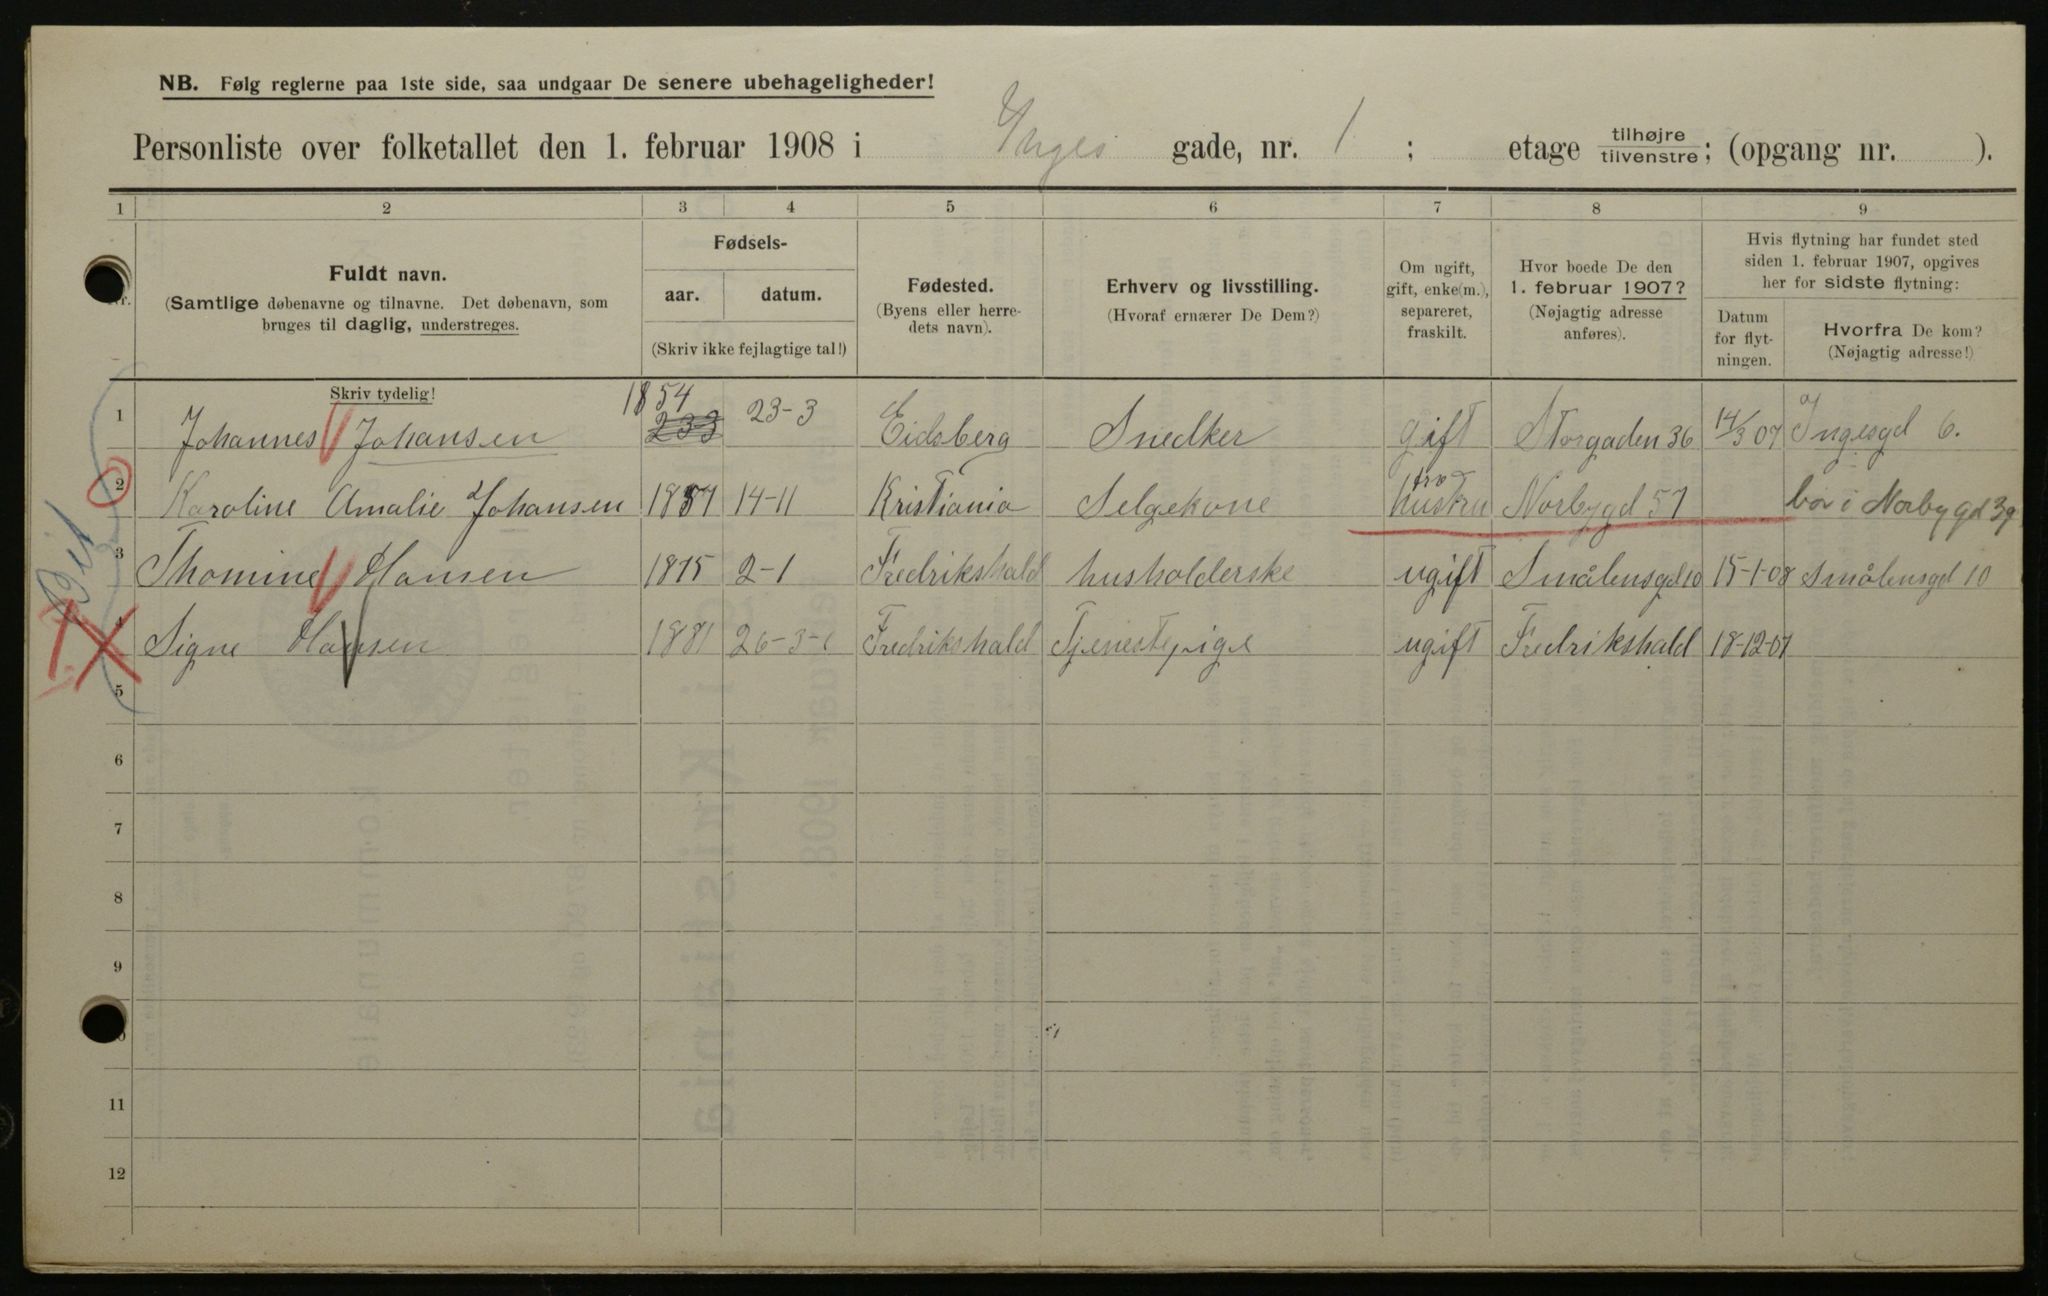 NB. Følg reglerne paa 1ste side, saa undgaar De senere ubehageligheder!
Personliste over folketallet den 1. februar 1908 i Inges gade, nr. 1 ; etage tilhøjre / tilvenstre ; (opgang nr. ).
1 2 3 4 5 6 7 8 9
Nr.
Fuldt navn.
(Samtlige døbenavne og tilnavne. Det døbenavn, som
bruges til daglig, understreges.
Skriv tydelig!
Fødsels-
aar. datum.
(Skriv ikke fejlagtige tal!)
Fødested.
(Byens eller herre-
dets navn).
Erhverv og livsstilling.
(Hvoraf ernærer De Dem?)
Om ugift,
gift, enke(m.),
separeret,
fraskilt.
Hvor boede De den
1. februar 1907?
(Nøjagtig adresse
anføres).
Hvis flytning har fundet sted
siden 1. februar 1907, opgives
her for sidste flytning:
Datum
for flyt-
ningen.
Hvorfra De kom?
(Nøjagtig adresse!)
1 Johannes Johansen 1854 233 23-3 Eidsberg Snedker gift Storgaden 36 14/3 07 Ingesgd 6.
2 Karoline Amalie Johansen 1857 14-11 Kristiania Selgekone hustru Norbygd 57 bor i Norbygd 39
3 Thomine Hansen 1875 2-1 Fredrikshald husholderske ugift Smålensgd 10 15-1-08 Smålensgd 10
4 Signe Hansen 1881 26-3- Fredrikshald Tjenestepige ugift Fredrikshald 18-12-07
5
6
7
8
9
11
12